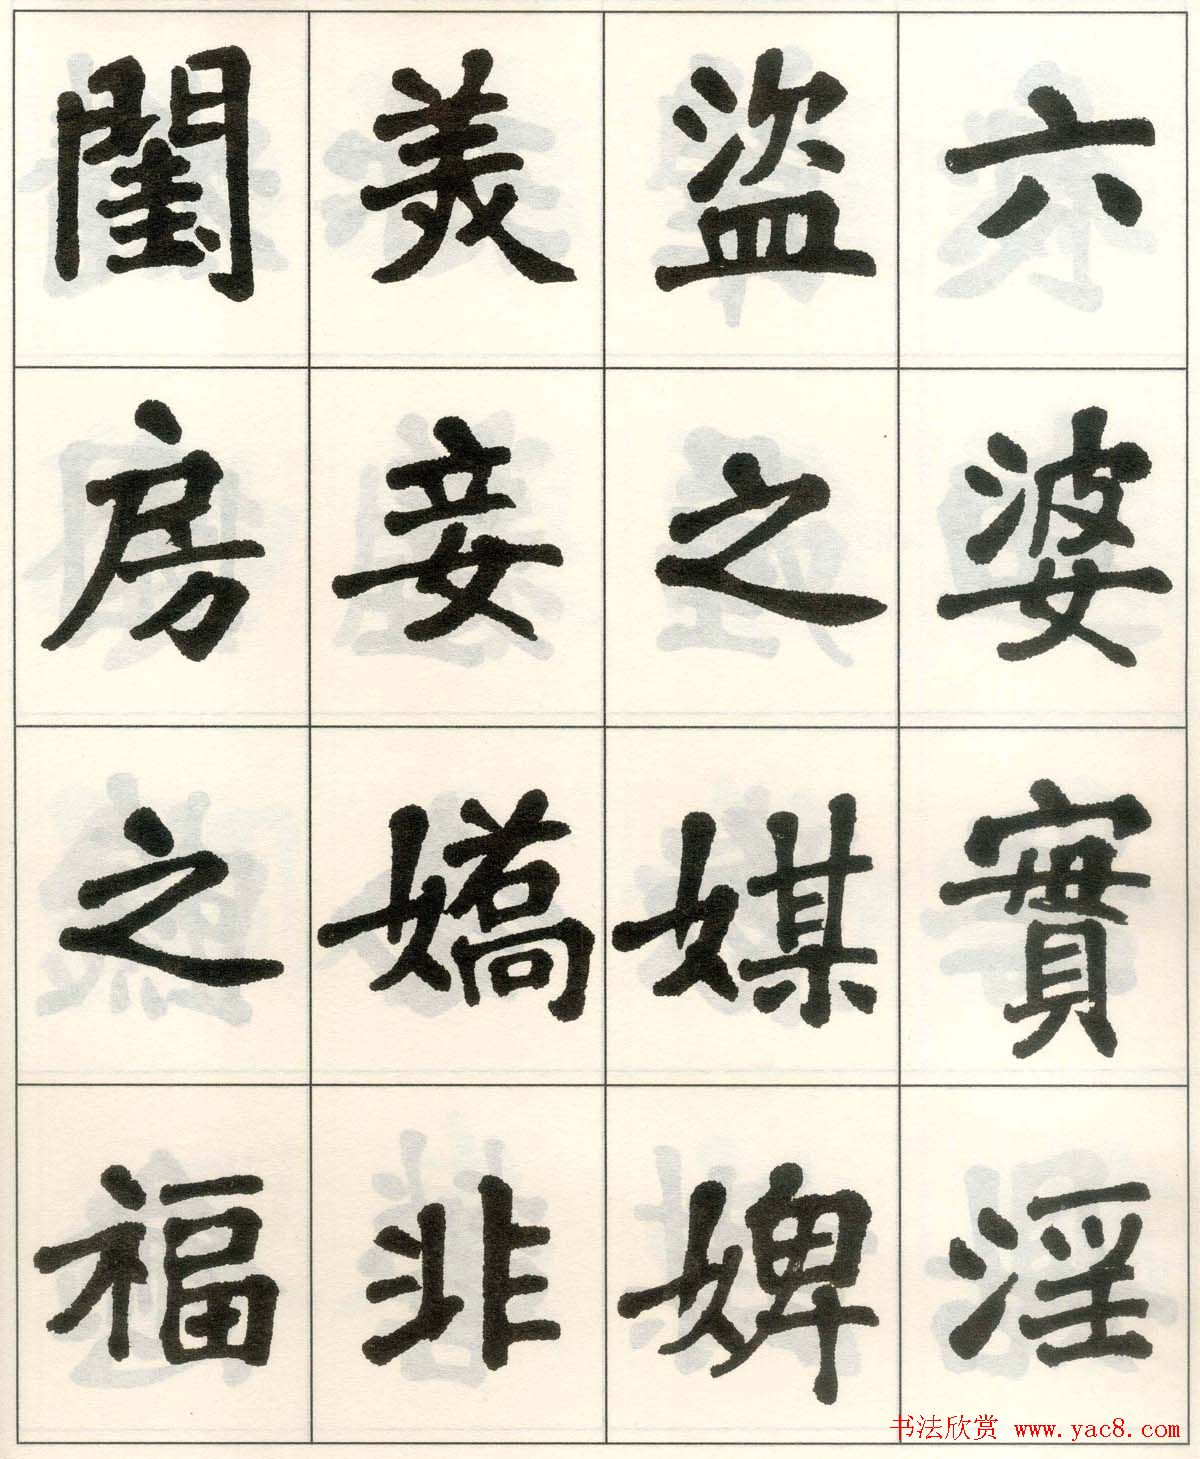 六婆實淫
盜之媒婢
美妾嬌非
閨房之福
书法欣赏 www.yac8.com